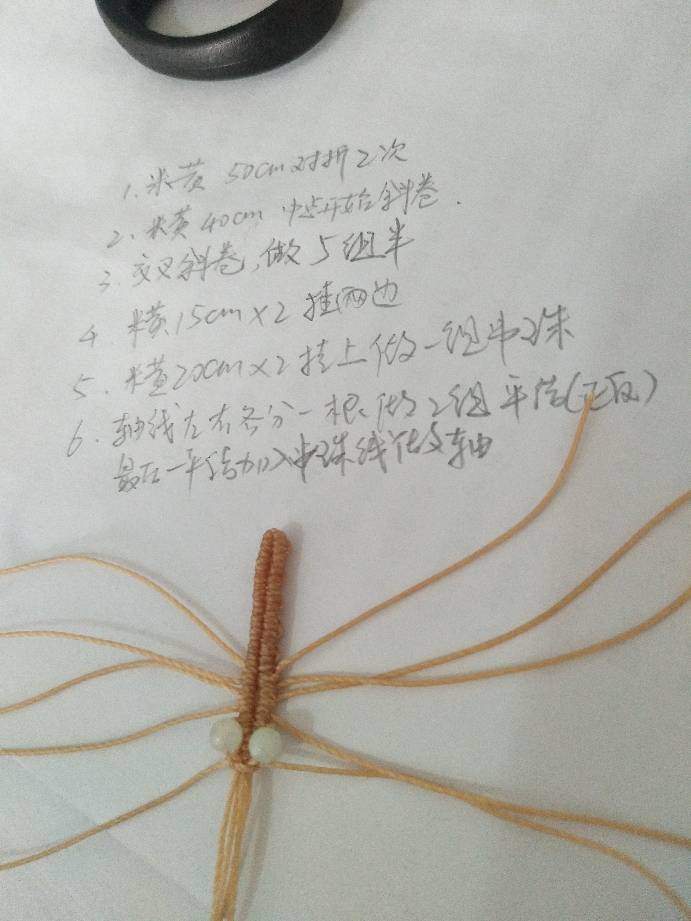 1. 米黄 50cm对折2次
2. 米黄40cm 中点开始斜卷.
3. 交叉斜卷,做5组半
4. 米黄15cm×2 挂两边
5. 米黄20cm×2挂上做一组串珠
6. 轴线左右各分一根做2组平结(正反)
最后一平结加入串珠线做轴